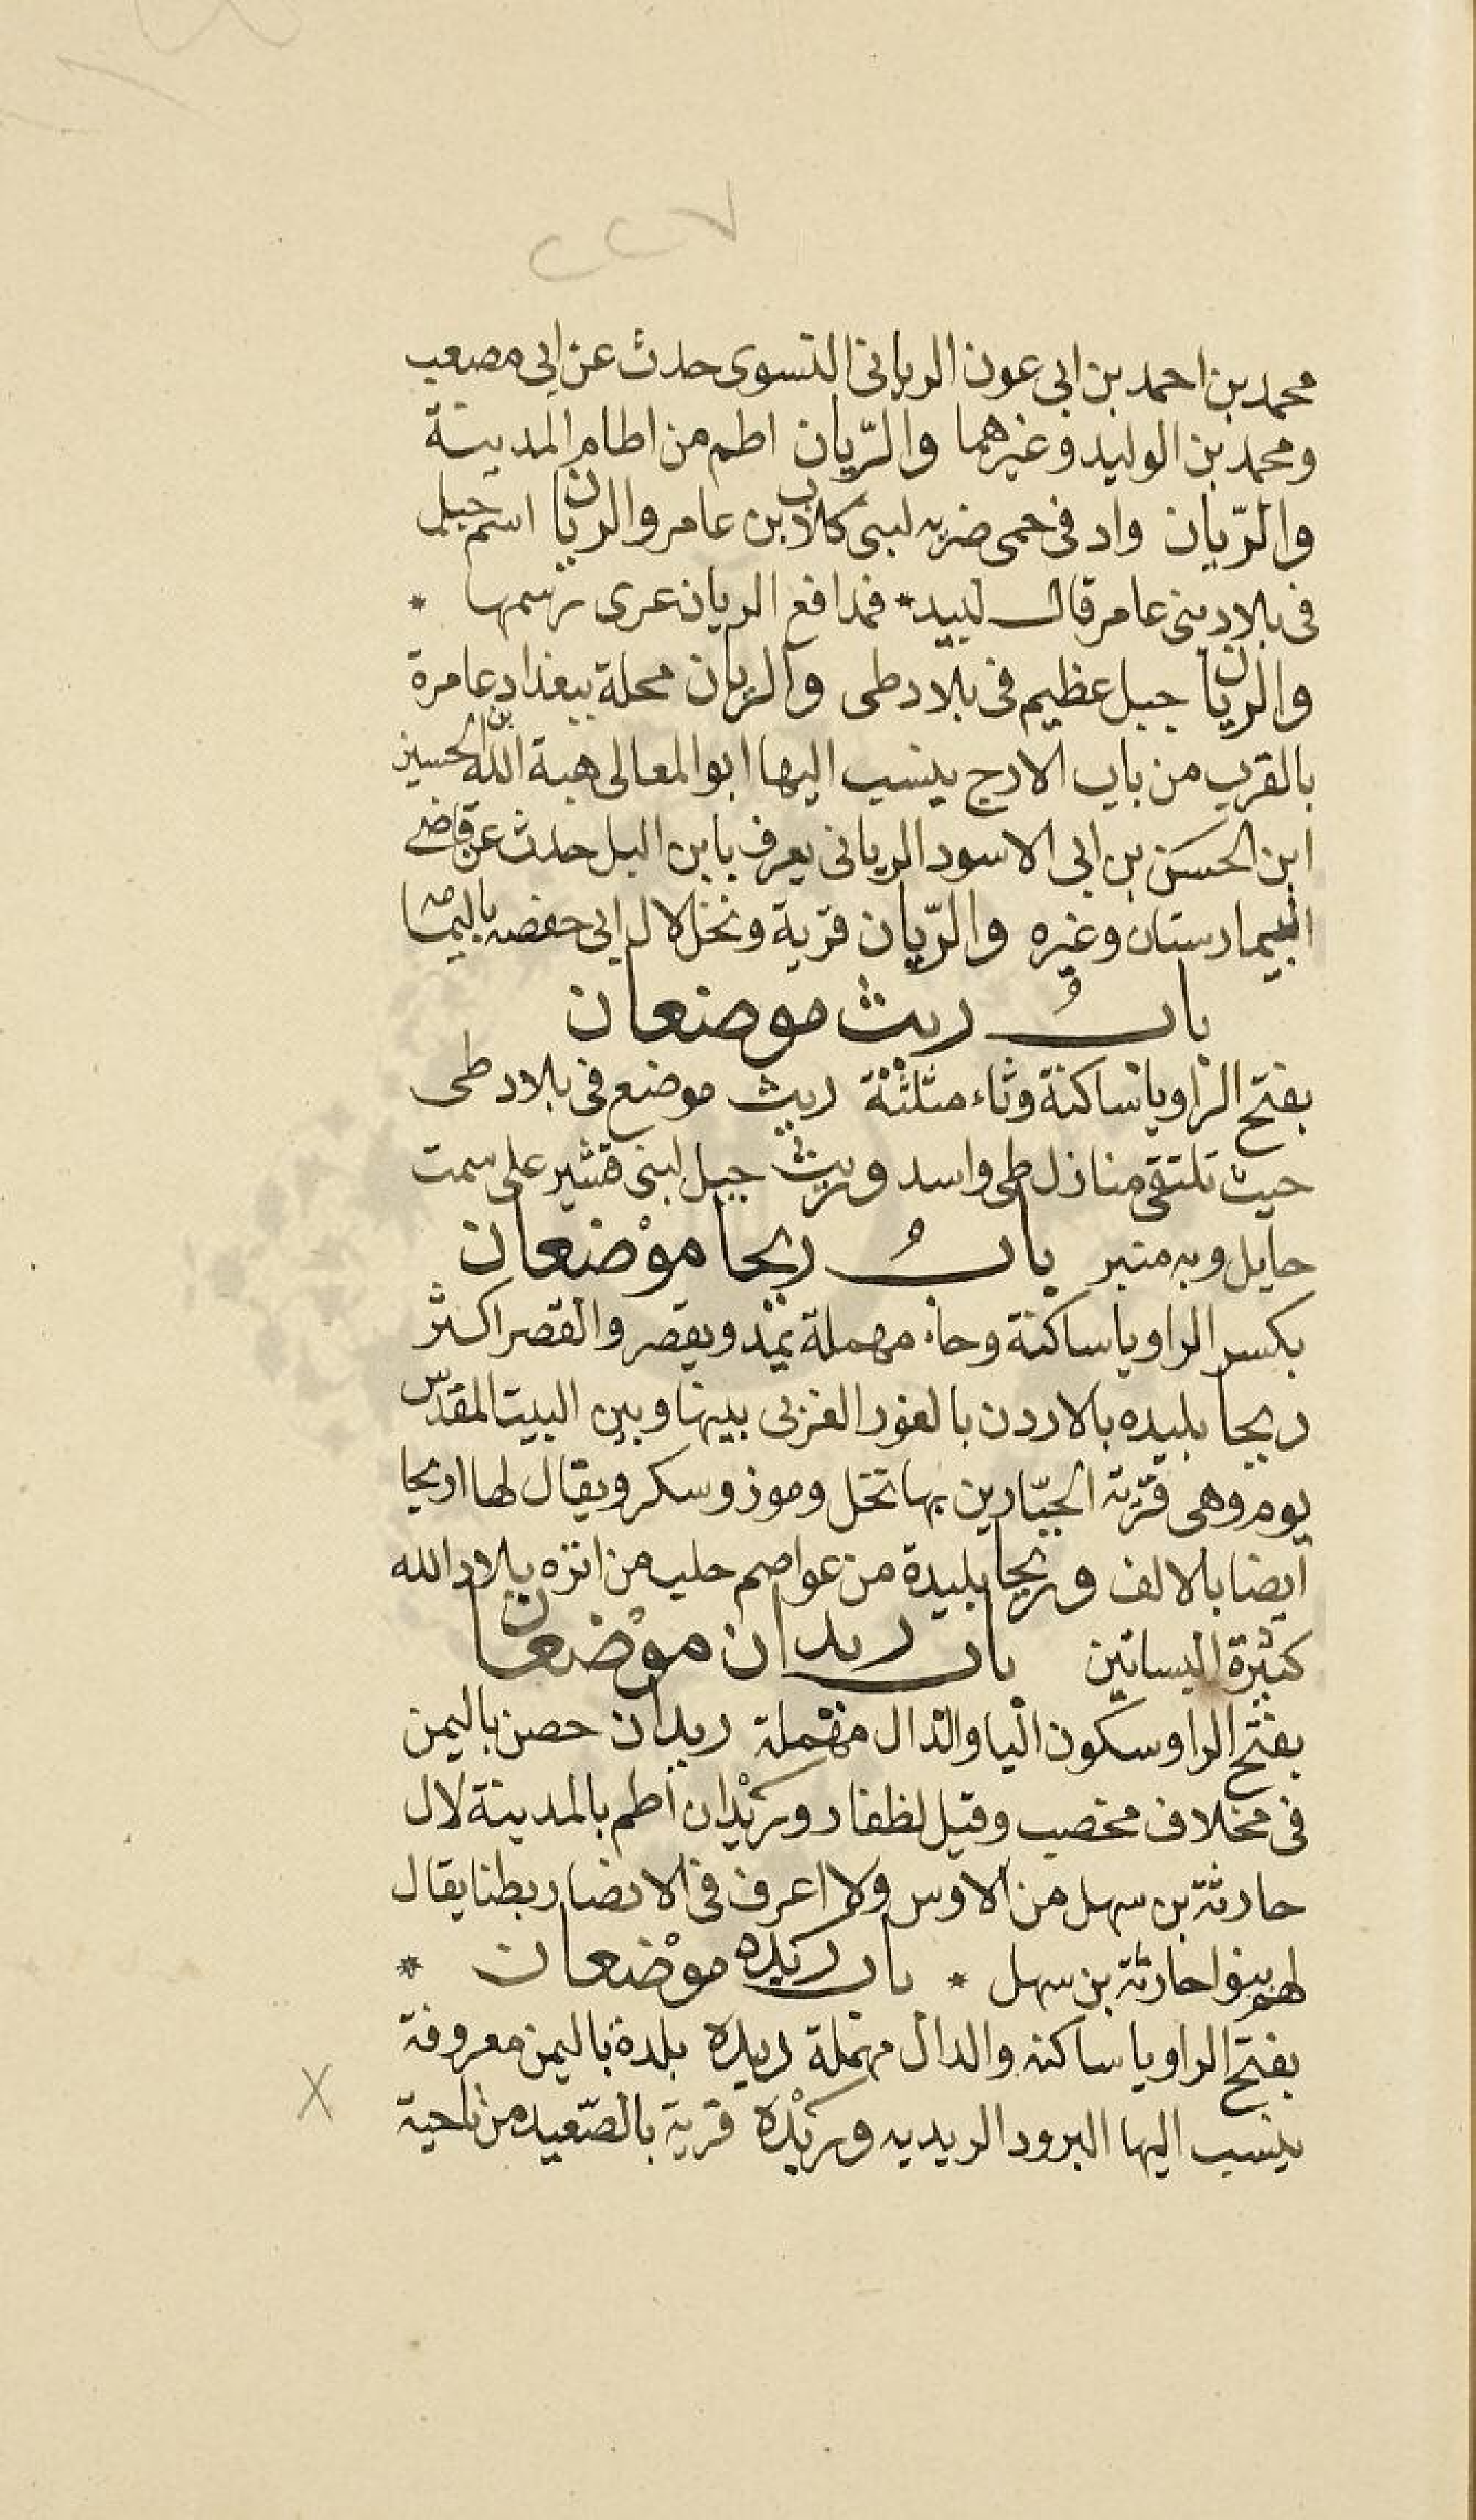 ٢٢٧
محمد بن احمد بن ابى عون الريانى النسوى حدث عن ابى مصعب
ومحمد بن الوليد وغيرهما والرّيان اطم من اطام المدينة
والرّيان واد فى حمى ضريه لبنى كلاب بن عامر والريان اسم جبل
فى بلاد بنى عامر قال لبيد * فمدافع الريان عرى رسمها *
والريان جبل عظيم فى بلاد طى والريان محلة ببغداد عامرة
بالقرب من باب الازج ينسب اليها ابو المعالى هبة الله بن الحسين
ابن الحسن بن ابى الاسود الريانى يعرف بابن البل حدث عن قاضى
البيمارستان وغيره والرّيان قرية ونخل لال ابى حفصه باليمامة
بابُ ريث موضعان
بفتح الرا ويا ساكنة وثاء مثلثة ريث موضع فى بلاد طى
حيث تلتقى منازل طى واسد وريث جبل لبنى قشير على سمت
حايل وبه منبر بابُ ريحا موْضعان
بكسر الرا ويا ساكنة وحاء مهملة يمد ويقصر والقصر اكثر
ريحا بليده بالاردن بالغور الغربى بينها وبين البيت المقدس
يوم وهى قرية الجبّارين بها نخل وموز وسكر ويقال لها اريحا
ايضا بالالف وريحا بليدة من عواصم حلب من انزه بلاد الله
كثيرة البساتين باب ريدان موْضعان
بفتح الرا وسكون اليا والدال مهملة ريدان حصن باليمن
فى مخلاف مخصب وقيل لظفار وريْدان اطم بالمدينة لال
حارثة بن سهل من الاوس ولا اعرف فى الانصار بطنا يقال
لهم بنوا حارثة بن سهل * باب ريده موْضعان *
بفتح الرا ويا ساكنه والدال مهملة ريده بلدة باليمن معروفة
ينسب اليها البرود الريديه وريْدة قرية بالصّعيد من ناحية